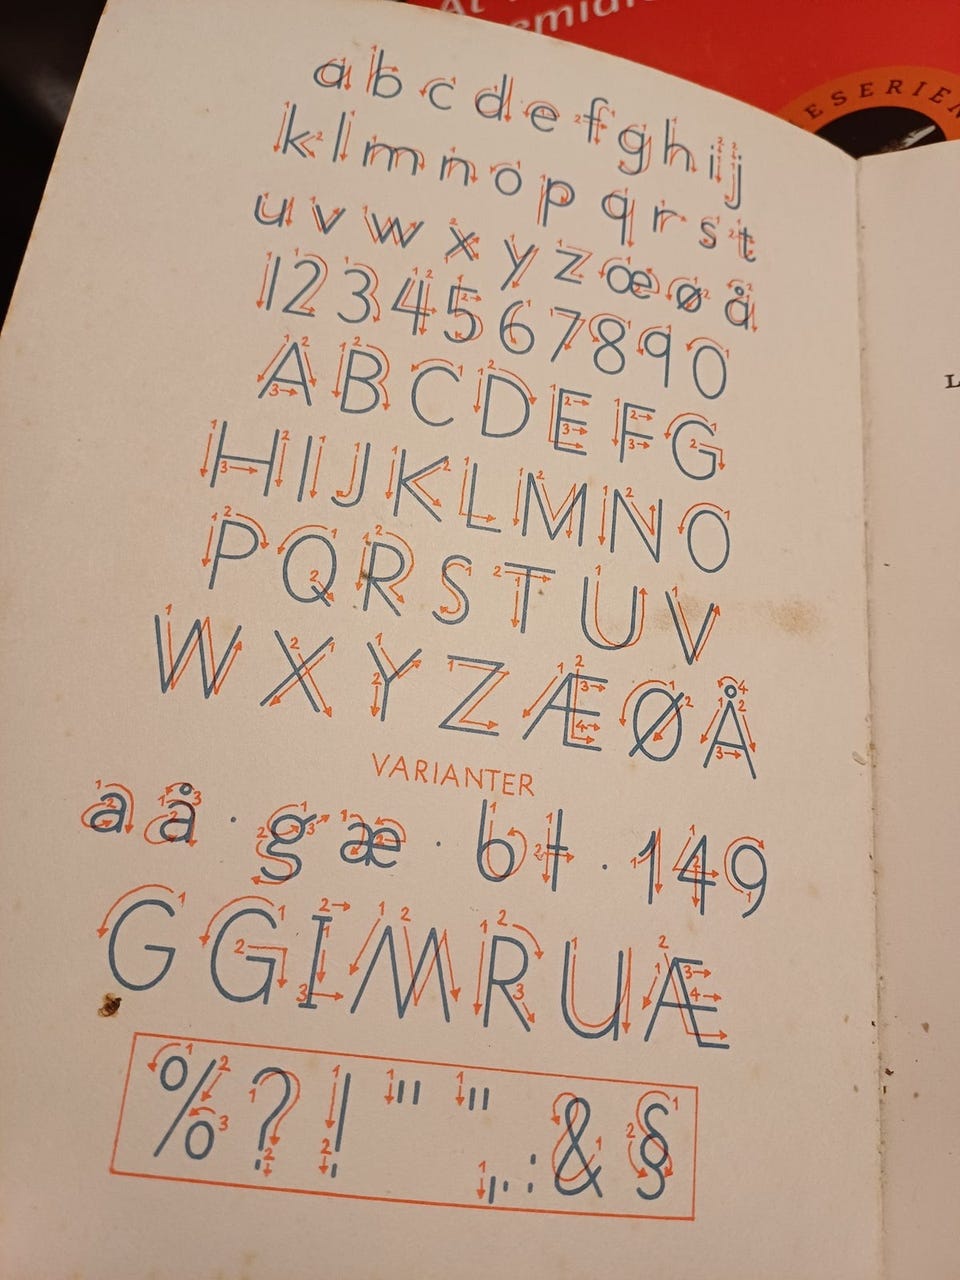 At
emidi
ESERIEN
a b c d e f g h i j
k l m n o p q r s t
u v w x y z æ ø å
1 2 3 4 5 6 7 8 9 0
A B C D E F G
H I J K L M N O
P Q R S T U V
W X Y Z Æ Ø Å
VARIANTER
a å · g æ · b t · 1 4 9
G G I M R U Æ
% ? ! " " , . : & §
L